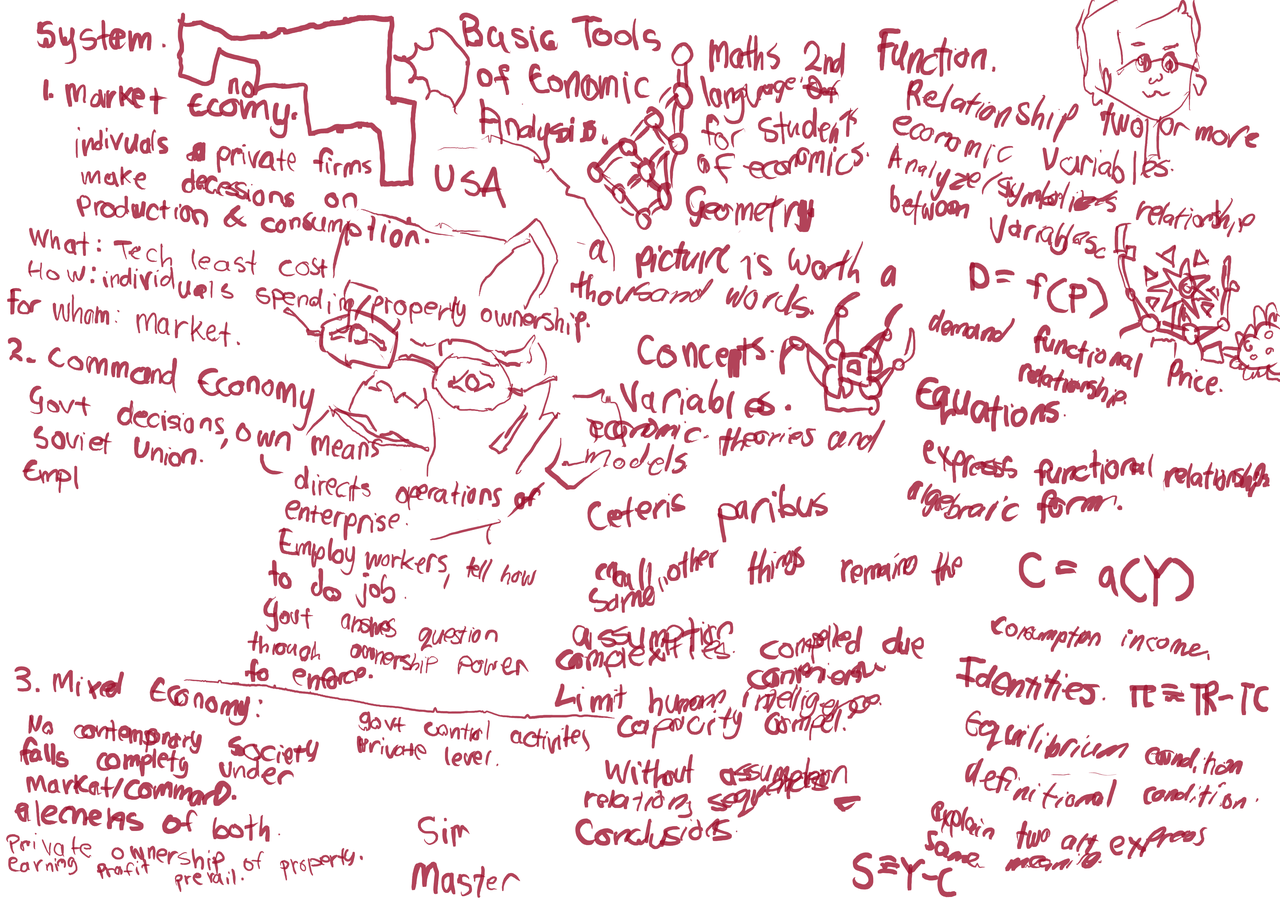 System.
1. Market Ecomy.
no
indivuals private firms
make decessions on
production & consumption.
What: Tech least cost
How: individuals spending/property ownership.
for wham: market.
2. Command Economy
Govt decisions, own means
Soviet Union.
Empl
directs operations of
enterprise.
Employ workers, tell how
to do job.
Govt question
through ownership power
to enforce.
3. Mixed Economy:
No contemporary society
falls complety under
Market/Command.
alemenents of both.
Private ownership of property.
earning profit prevail.
govt control activites
private level.
Sim
Master
USA
Basic Tools
of Eonomic
Analysis.
Maths 2nd
language
for students
of economics.
Geometry
a picture is worth a
thousand words.
Concepts.
Variables.
economic theories and
models
Ceteris paribus
other things remains the
same
assumption
complexities. compelled due
Limit human intelligence
capacity compel.
Without assumption
relations sequences
Conclusions.
Function.
Relationship two or more
economic variables.
Analyze/symbolises relationship
between variables.
D = f(P)
demand functional Price.
relationship.
Equations.
express functional relationship
algebraic form.
C = a(Y)
consumption income.
Identities. π ≡ TR-TC
Equilibrium condition
definitional condition.
explain two alt express
same meaning.
S≡Y-C